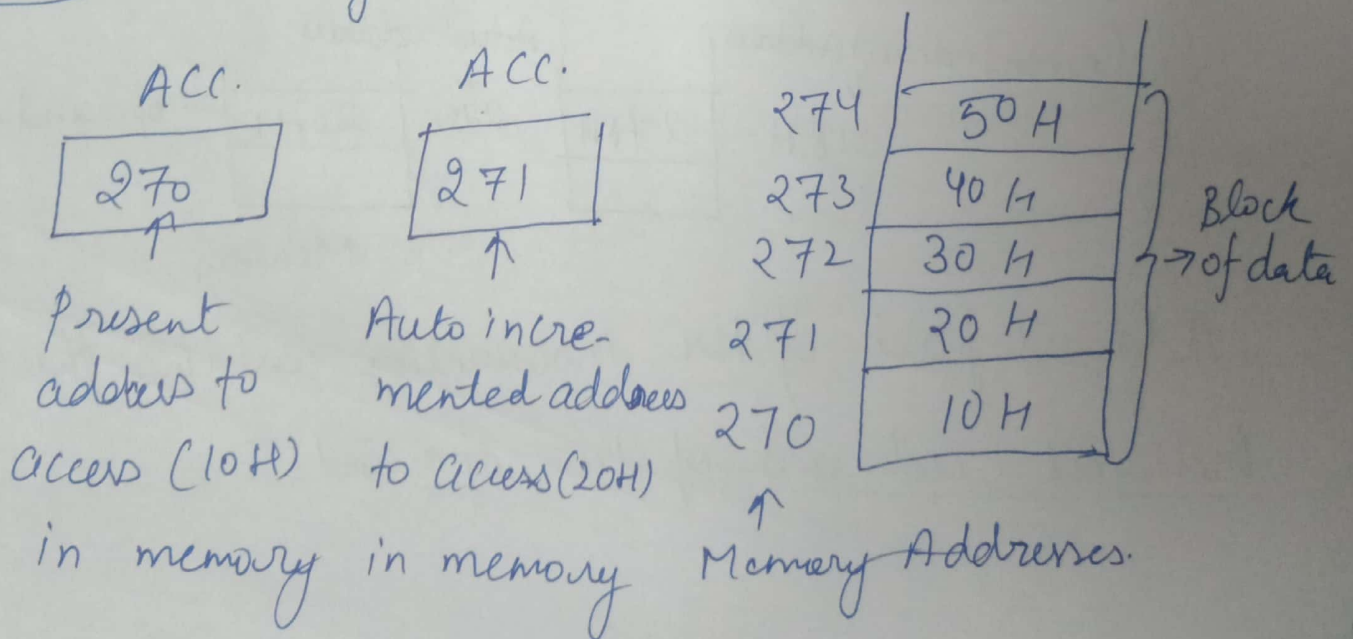 ACC.
270
Present
address to
access (10H)
in memory
ACC.
271
Auto incre-
mented address
to access (20H)
in memory
274 50 H
273 40 H
272 30 H
271 20 H
270 10 H
Block
of data
Memory Addresses.